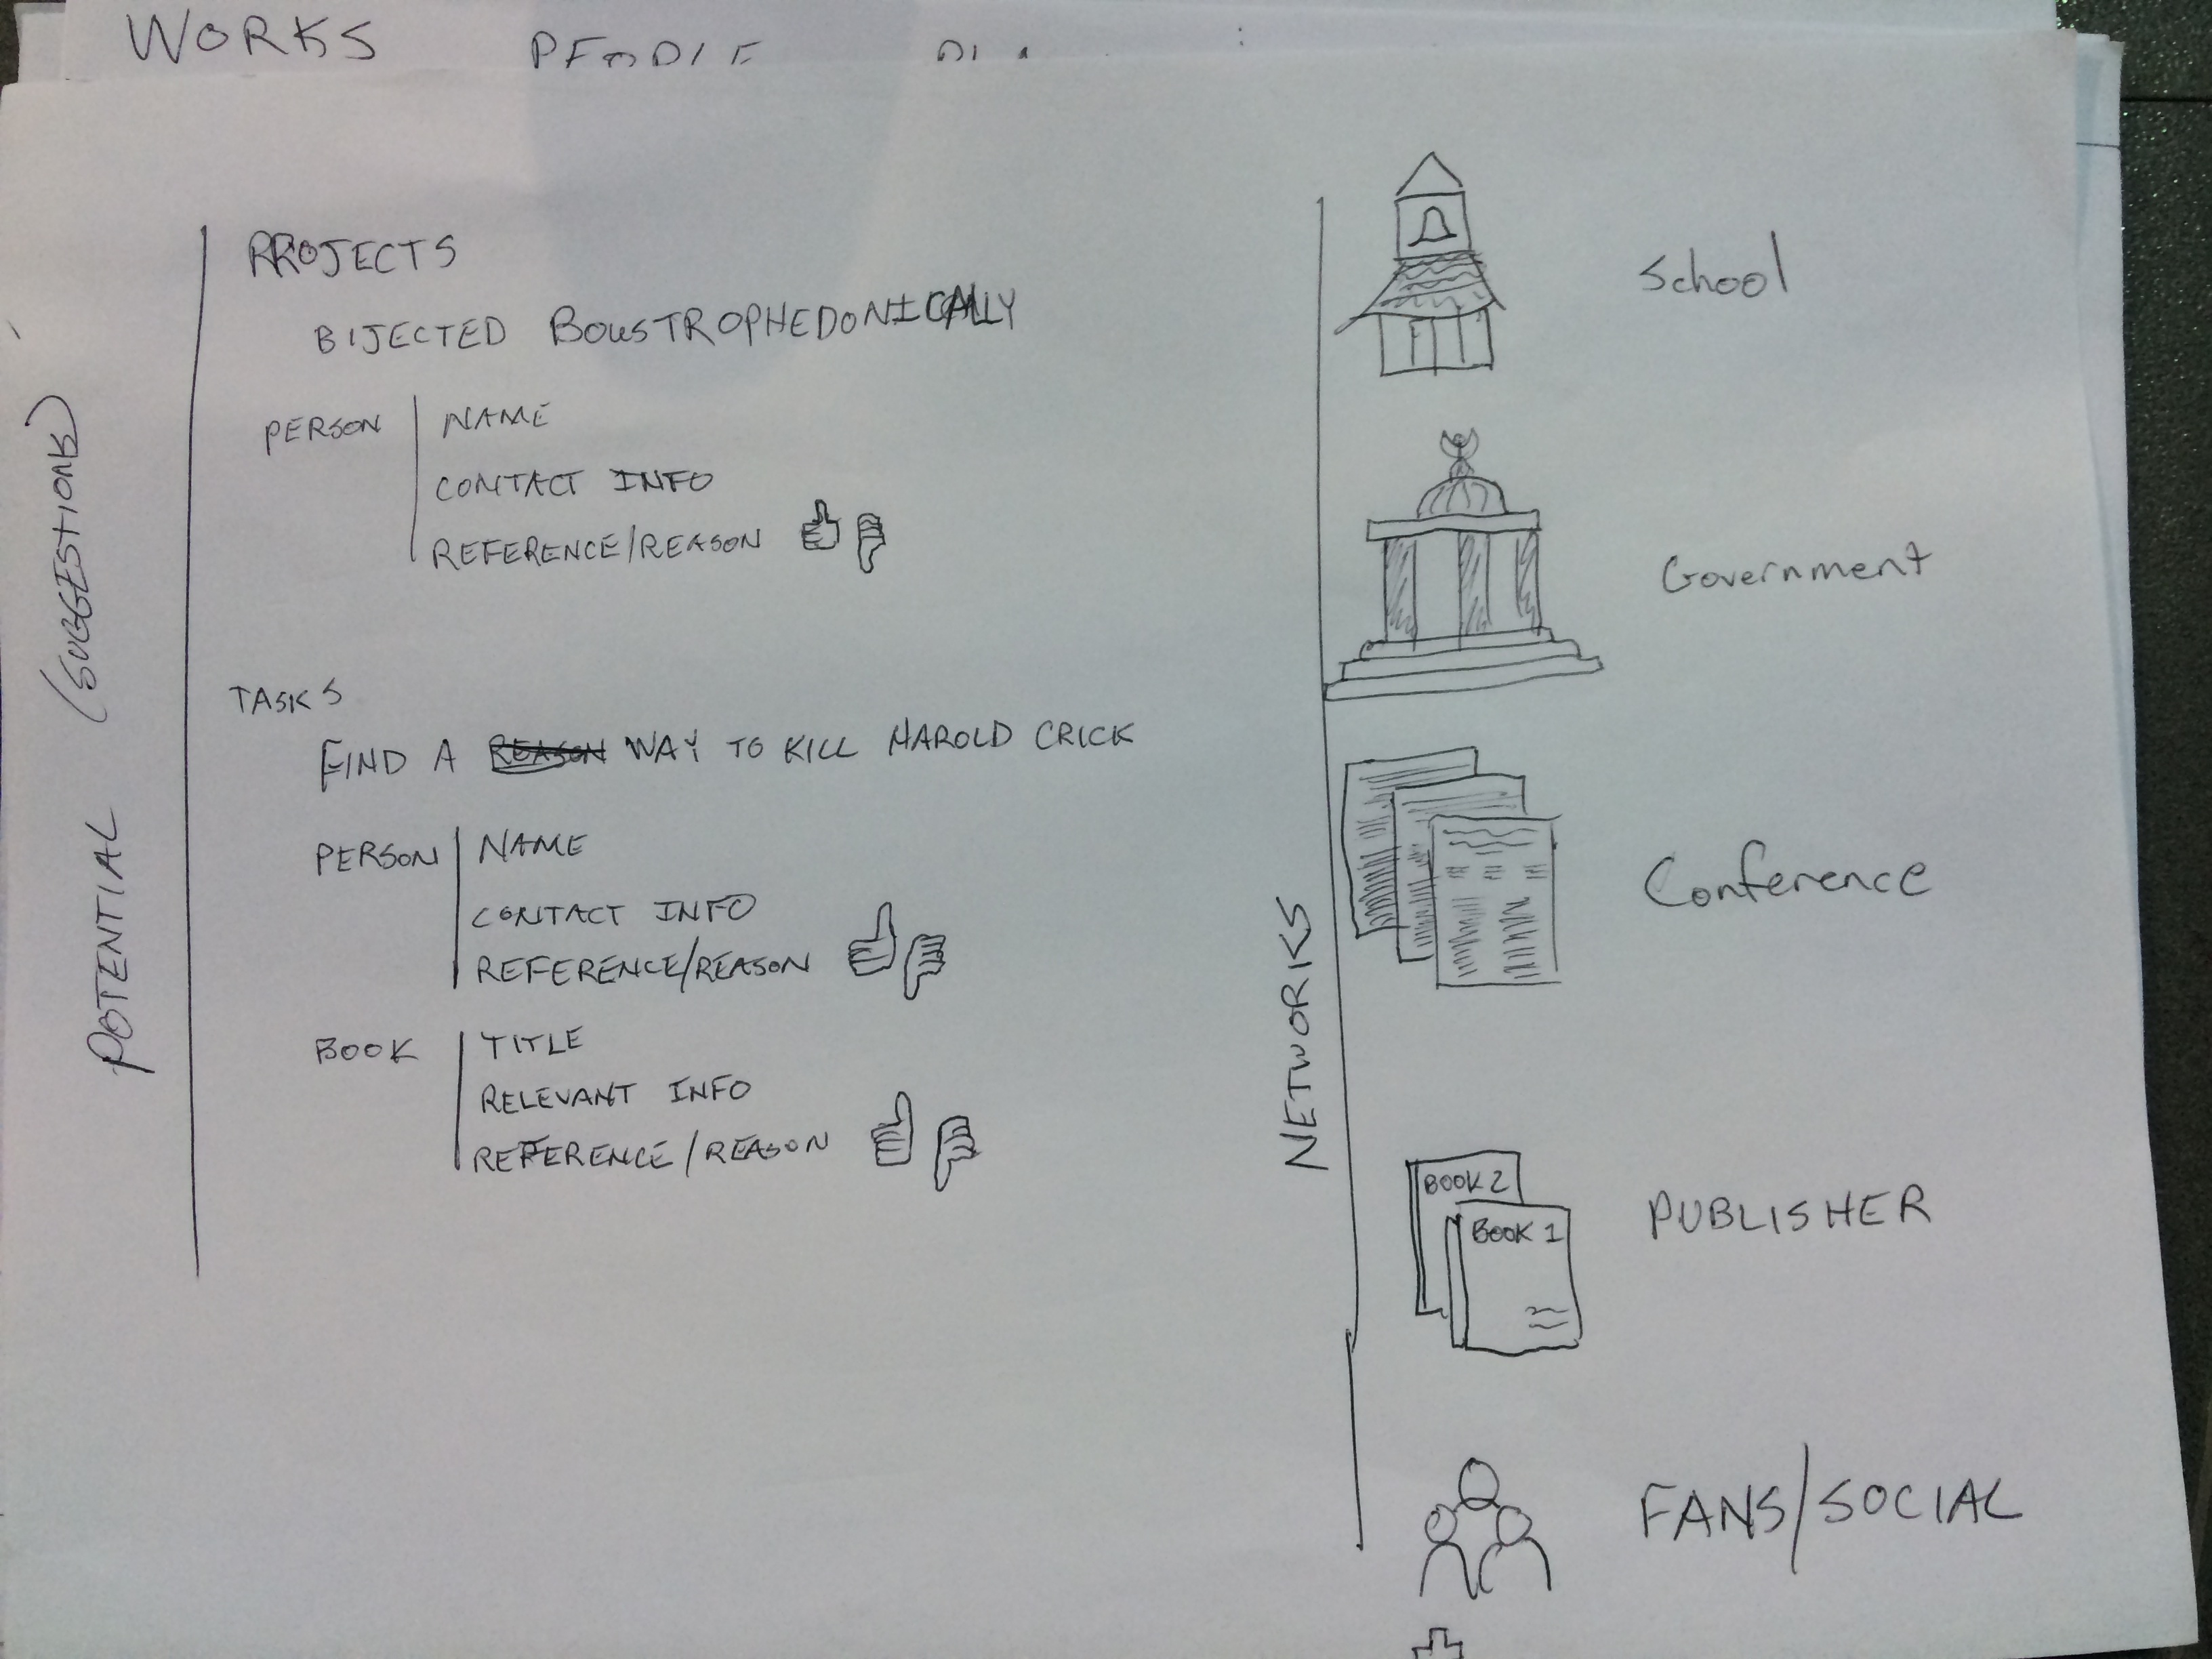 WORKS PEOPLE
POTENTIAL (SUGGESTIONS)
PROJECTS
BIJECTED BOUSTROPHEDONICALLY
PERSON NAME
CONTACT INFO
REFERENCE/REASON
TASKS
FIND A REASON WAY TO KILL HAROLD CRICK
PERSON NAME
CONTACT INFO
REFERENCE/REASON
BOOK TITLE
RELEVANT INFO
REFERENCE/REASON
NETWORKS
School
Government
Conference
BOOK 2
BOOK 1
PUBLISHER
FANS/SOCIAL